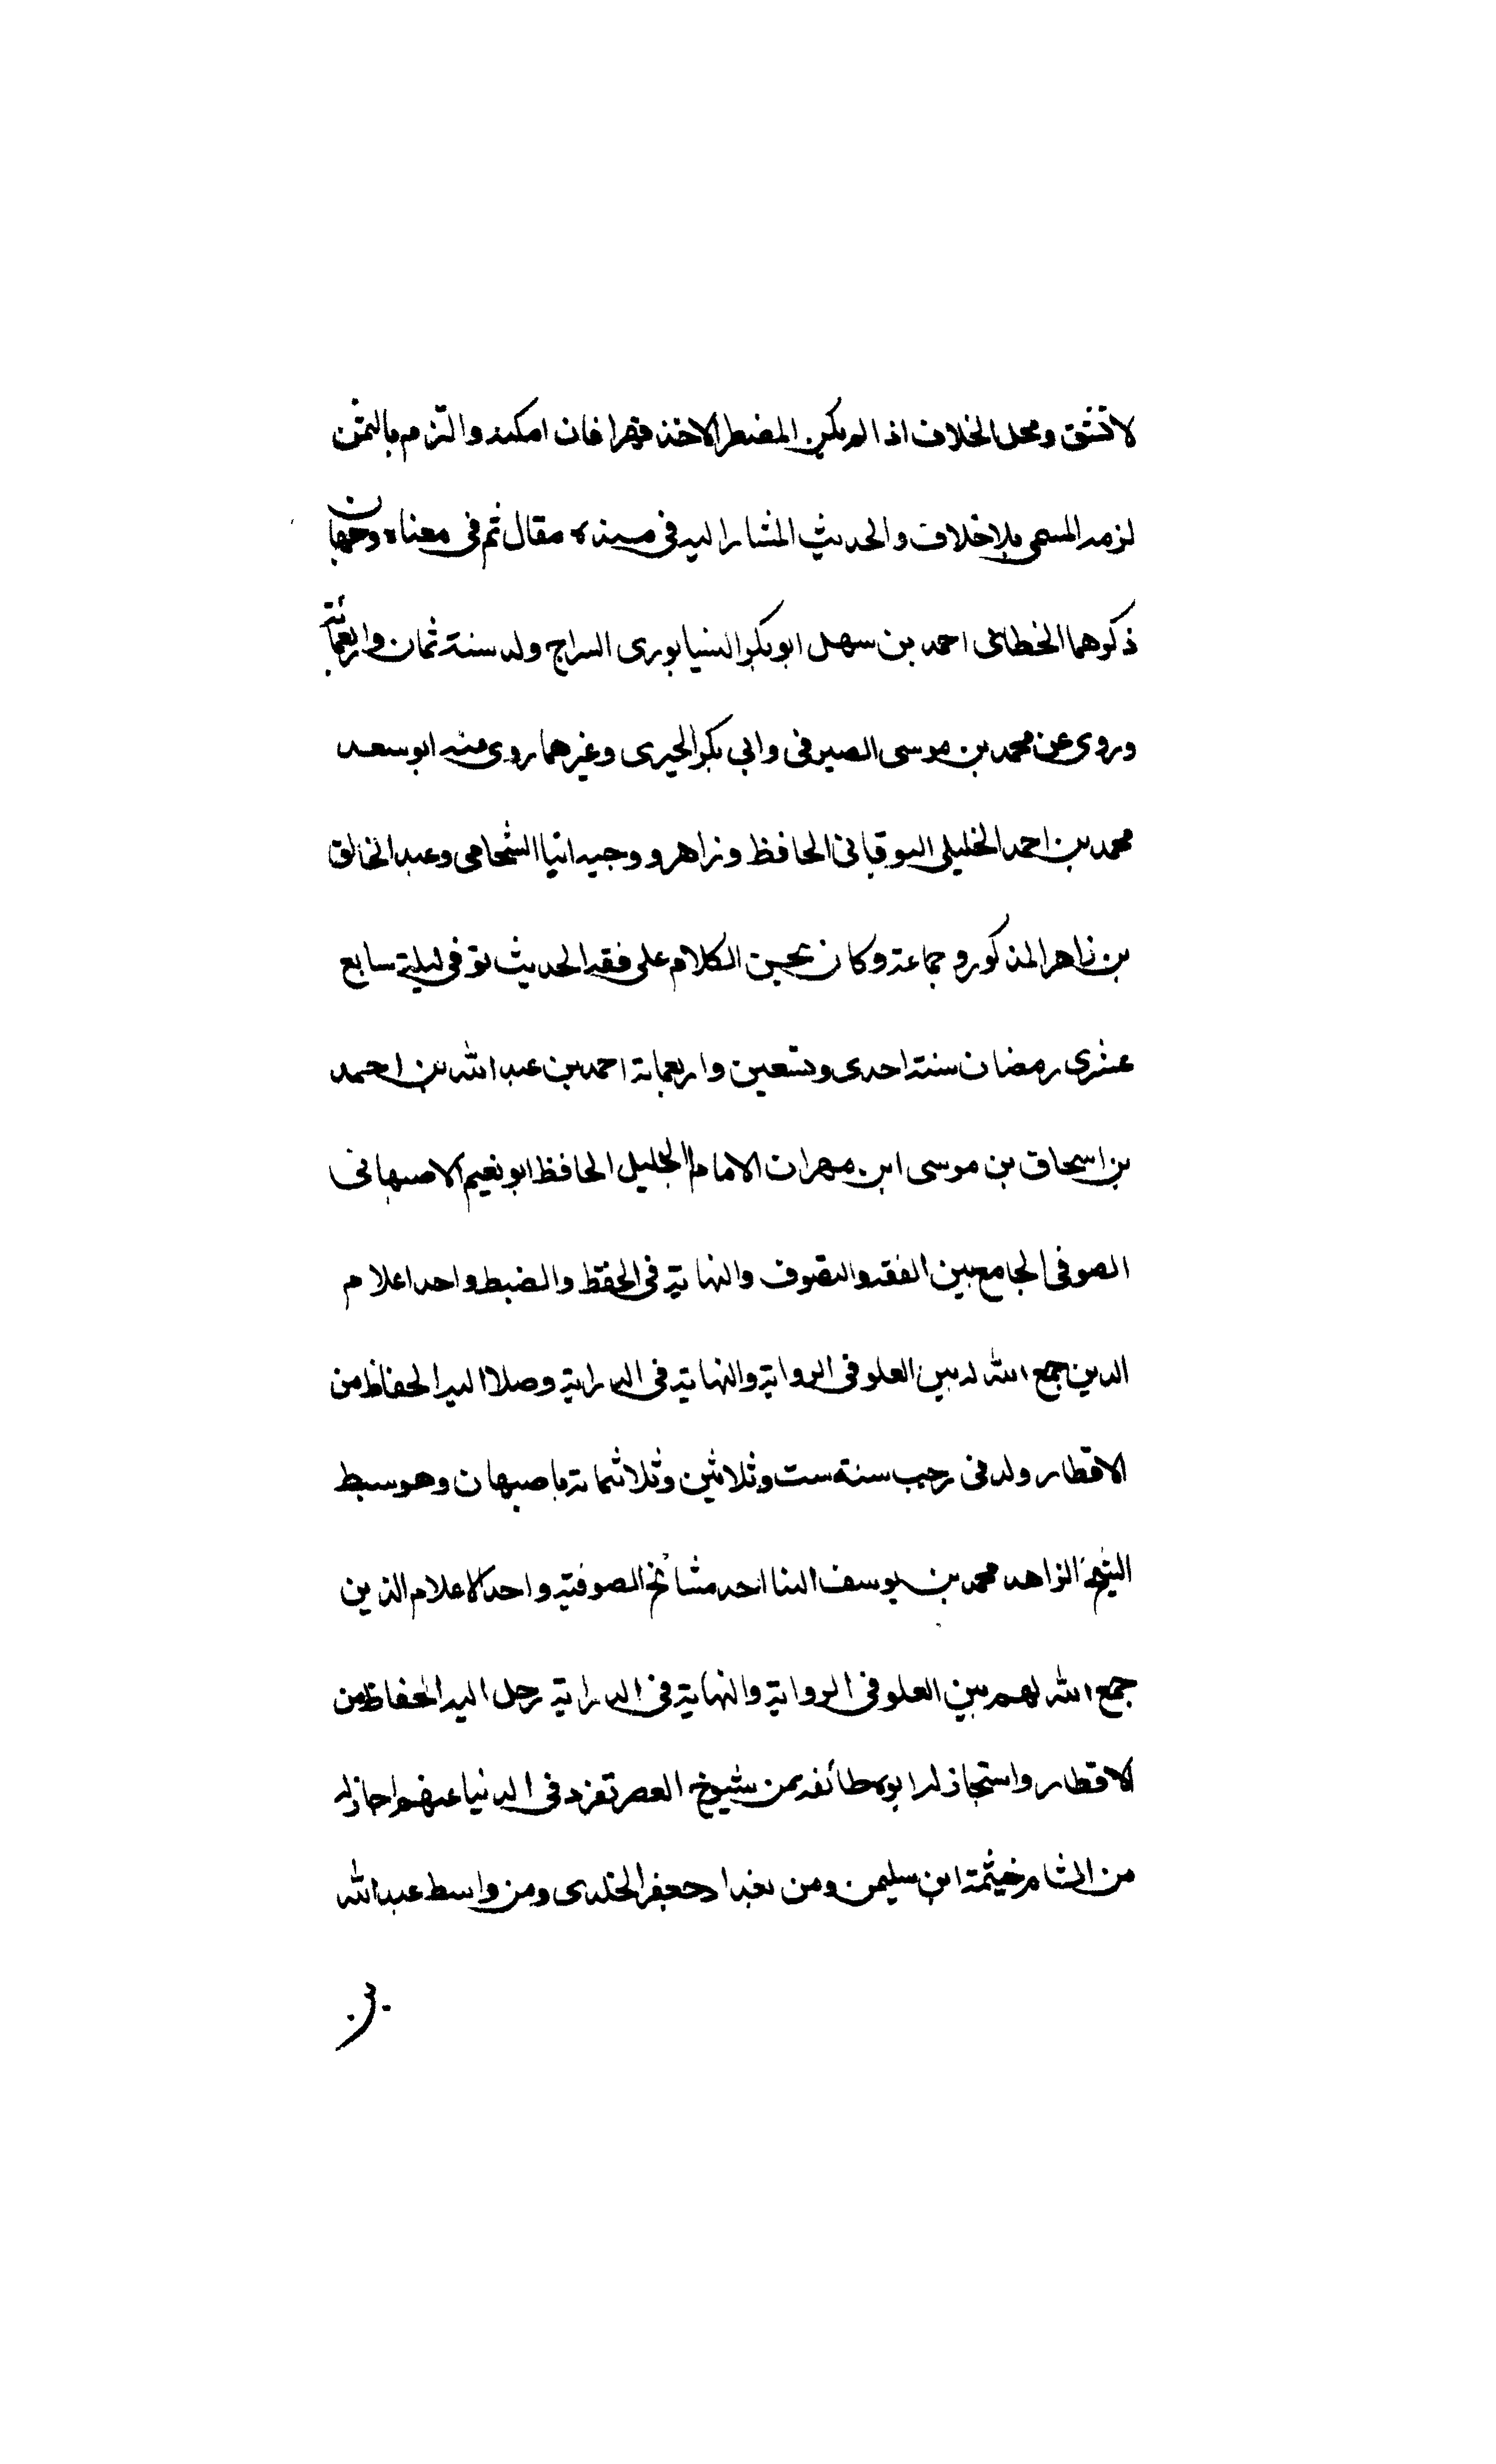 لا تنشق ومحل الخلاف اذا لم يكن المضطر الاخذ قهرا فان امكنه والتزم بالثمن
لزمه المسمى بلا خلاف والحديث المشار اليه فى سنده مقال ثم فى معناه وجهان
ذكرهما الخطابى احمد بن سهل ابو بكر النسيابورى السراج ولد سنة ثمان واربعمائة
وروى عن محمد بن موسى الصيرفى وابي بكر الحيرى وغيرهما روى عنه ابو سعد
محمد بن احمد الخليلى النوقانى الحافظ وزاهر و وجيه ابنا الشحامى وعبد الخالق
بن زاهر المذكور وجماعة وكان يحسن الكلام على فقه الحديث توفى ليلة سابع
عشرى رمضان سنة احدى وتسعين واربعماية احمد بن عبد الله بن احمد
بن اسحاق بن موسى ابن مهران الامام الجليل الحافظ ابو نعيم الاصبهانى
الصوفى الجامع بين الفقه والتصوف والنهاية فى الحفظ والضبط واحد اعلام
الدين جمع الله له بين العلو فى الرواية والنهاية فى الدراية وصلا اليه الحفاظ من
الاقطار ولد فى رجب سنة ست وثلاثين وثلاثماية باصبهان وهو سبط
الشيخ الزاهد محمد بن يوسف البنا احد مشائخ الصوفية واحد الاعلام الذين
جمع الله لهم بين العلو فى الرواية والنهاية فى الدراية رحل اليه الحفاظ من
الاقطار واستجاز له ابوه طائفة من شيوخ العصر تفرد فى الدنيا عنهم اجاز له
من الشام خيثمة ابن سليمن ومن بغداد جعفر الخلدى ومن واسط عبد الله
بن